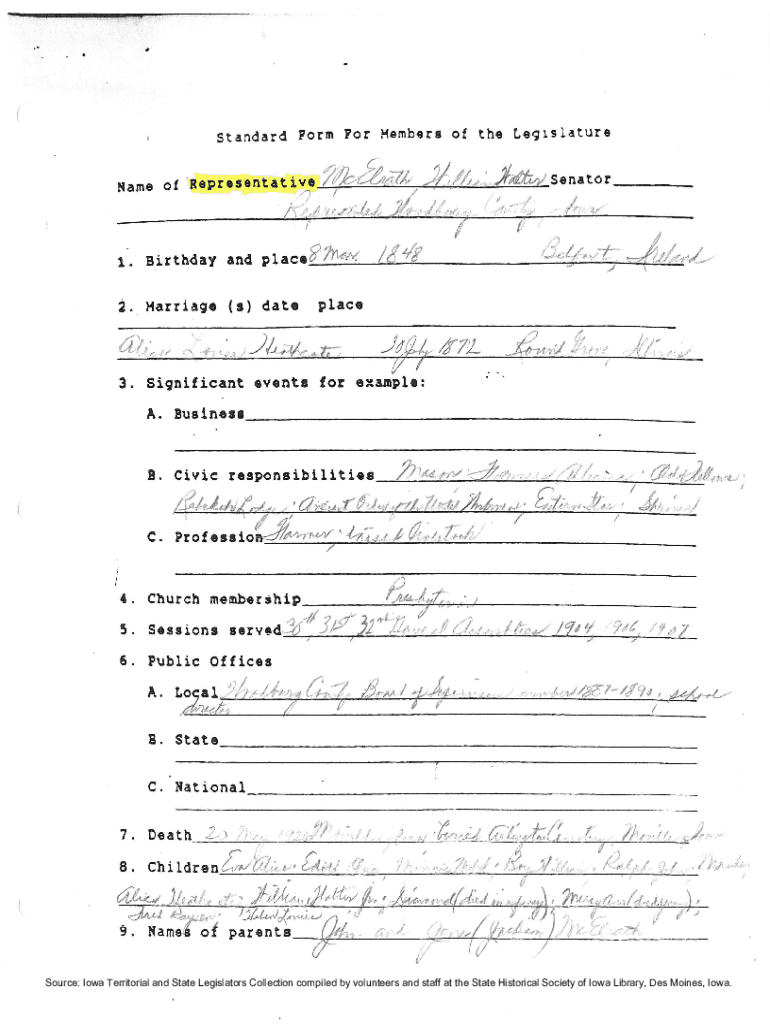 Standard Form For Members of the Legislature
Name of Representative McElrath, William Walter Senator
Represented Woodbury County, Iowa
1. Birthday and place 8 Mar. 1848 Belfast, Ireland
2. Marriage (s) date place
Alice Louise Heathcote 30 July 1872 Round Grove, Illinois
3. Significant events for example:
A. Business
B. Civic responsibilities Mason; Farmers Alliance; Odd Fellows;
Rebekah Lodge; Ancient Order of the United Workmen; Eastern Star; Shrine
C. Profession Farmer; raised livestock
4. Church membership Presbyterian
5. Sessions served 30th, 31st, 32nd General Assemblies 1904, 1906, 1907
6. Public Offices
A. Local Woodbury County Board of Supervisors member 1887-1890; school
director
B. State
C. National
7. Death 20 May Moville, Iowa buried Arlington Cemetery, Moville, Iowa
8. Children Eva Alice; Edith; Minnie; Roy William; Ralph John;
Alice Heathcote; William Walter Jr.; (died in infancy); Mary Ann (died young);
Fred; Helen Louise
9. Names of parents John and (Jackson) McElrath
Source: Iowa Territorial and State Legislators Collection compiled by volunteers and staff at the State Historical Society of Iowa Library, Des Moines, Iowa.